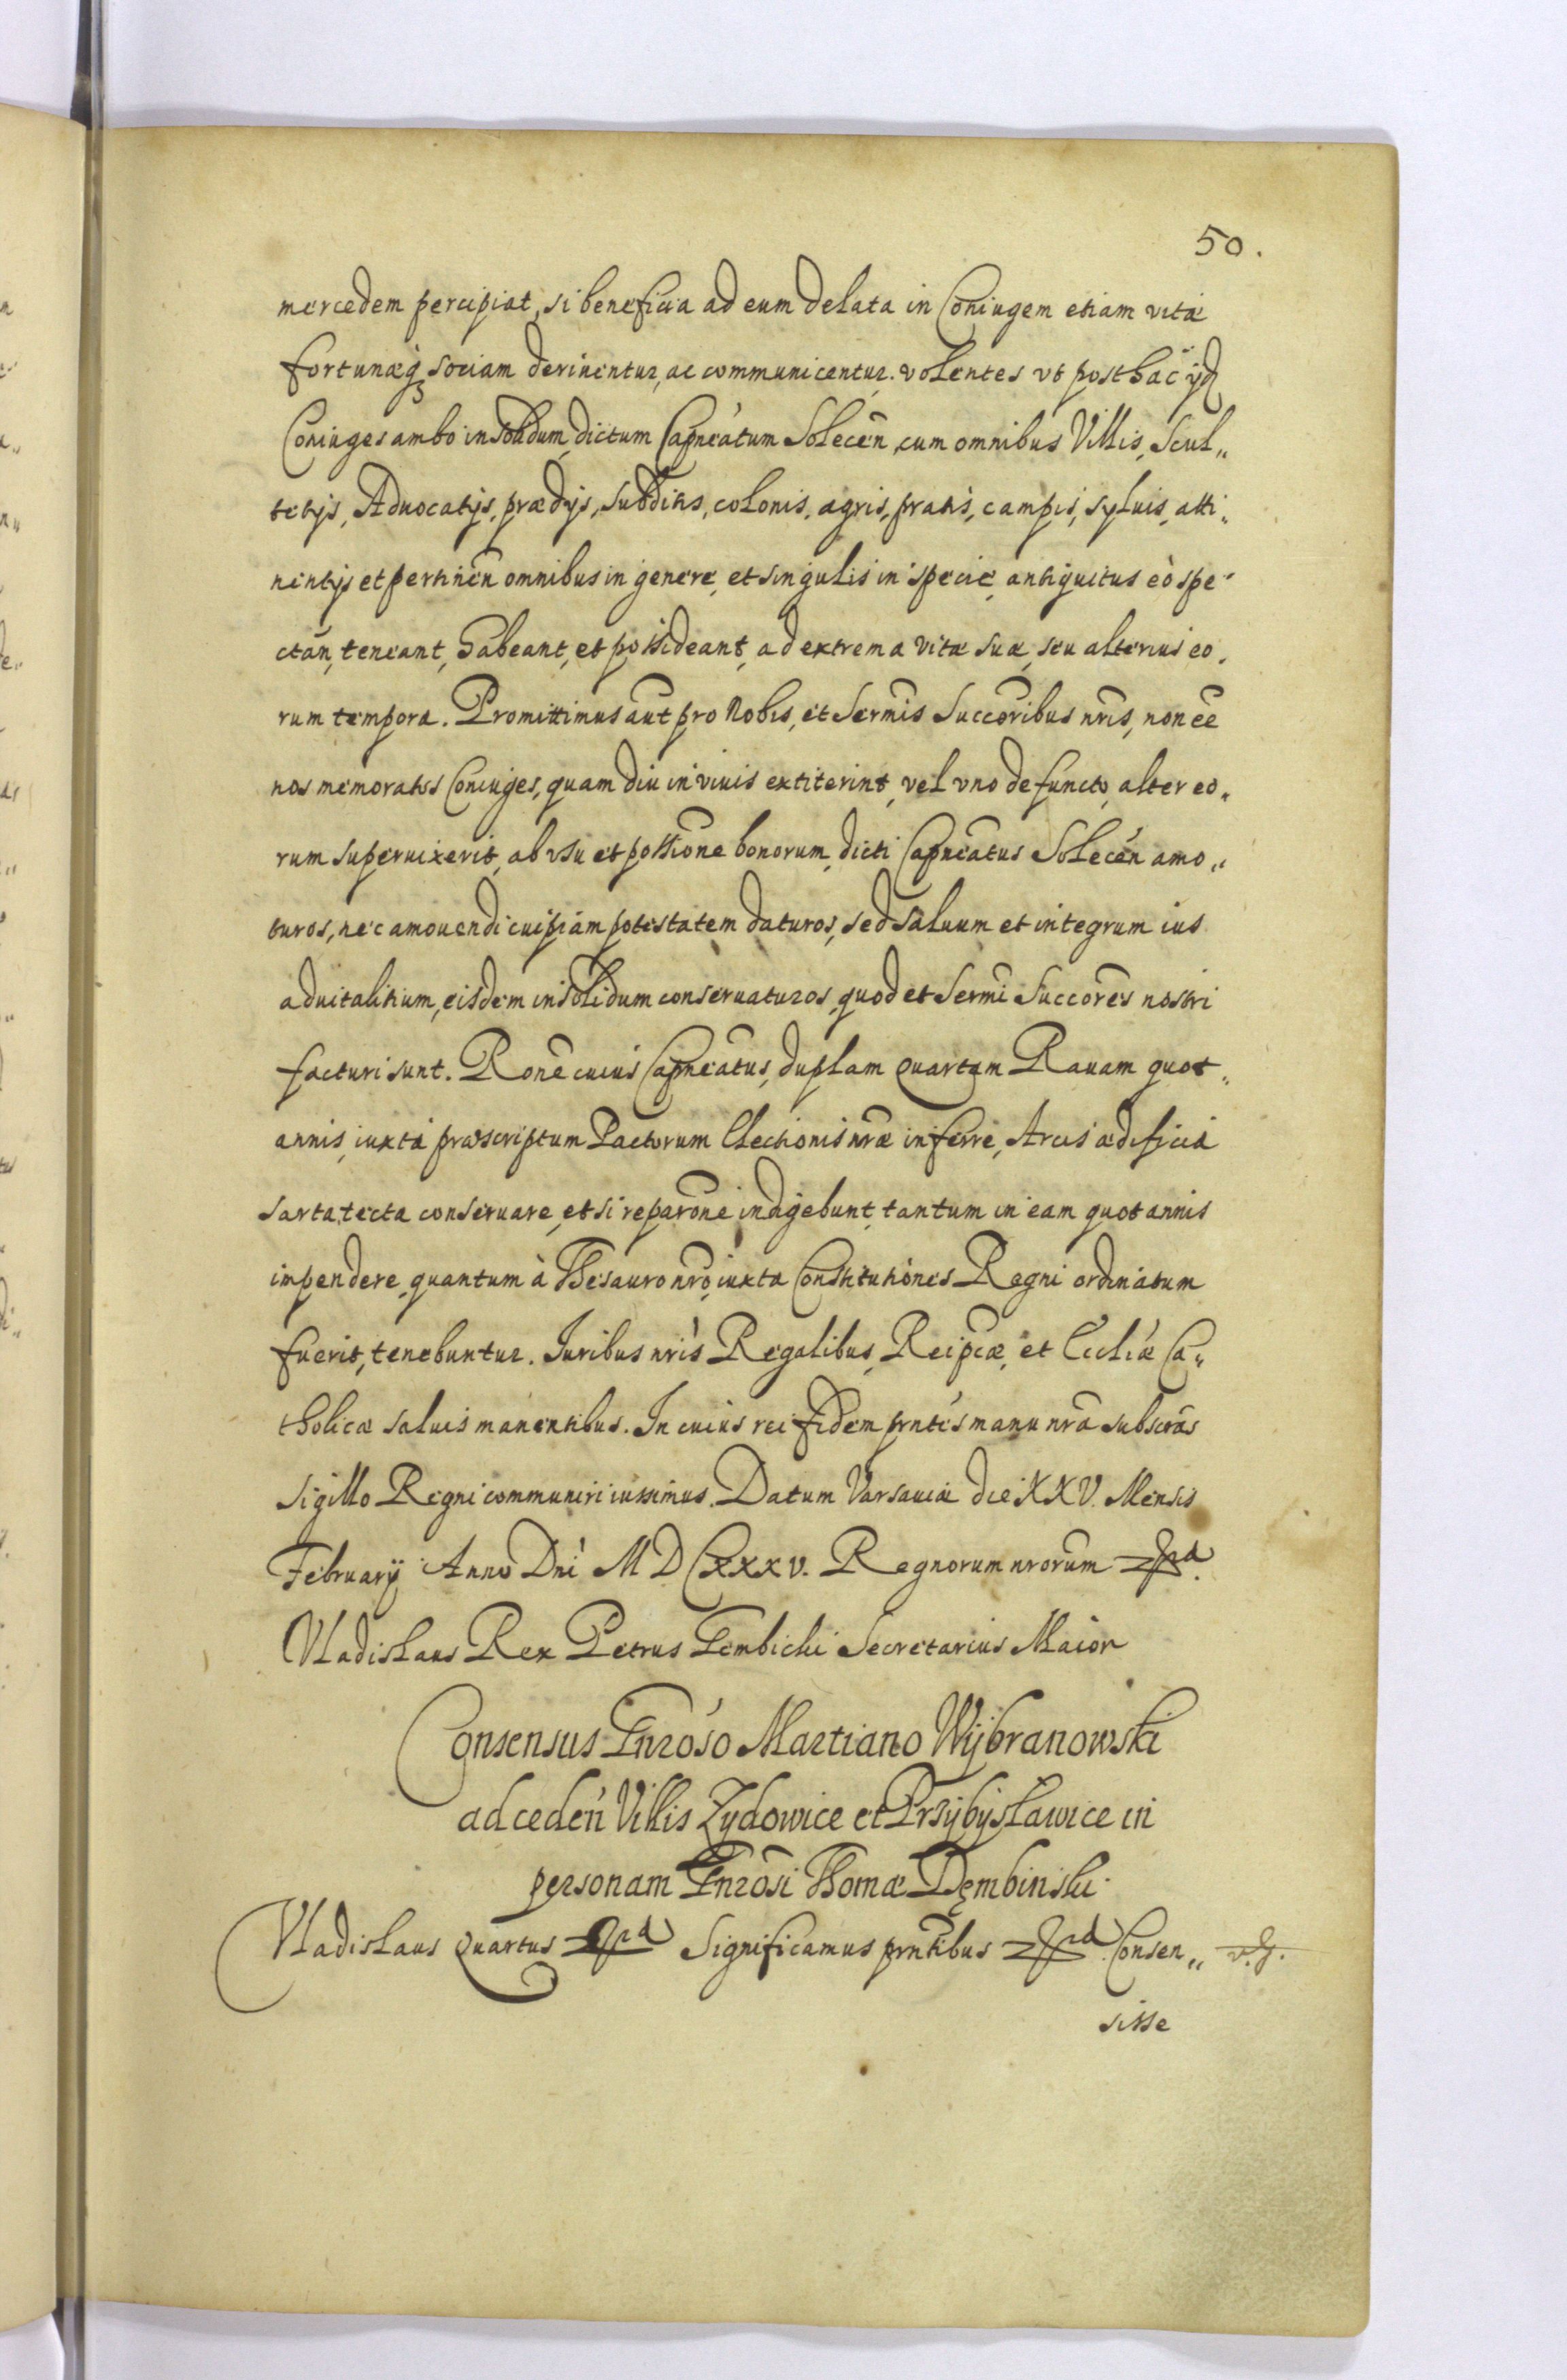 50.
mercedem percipiat, si beneficia ad eum delata in Coniugem etiam vitæ
fortunæq₃ sociam deriventur, ac communicentur. volentes vt posthac ijd
Coniuges ambo in solidum, dictum Capneatum Solecen̄, cum omnibus Villis, Scul„
tetijs, Aduocatijs, prædijs, subditis, colonis, agris, pratis, campis, syluis, atti„
nentijs et pertinen̄ omnibus in genere, et singulis in specie, antiquitus eò spe„
ctan̄, teneant, habeant, et possideant, ad extrema vitæ suæ, seu alterius eo„
rum tempora. Promittimus aūt pro Nobis, et Sermis Succoribus nris, non ēe
nos memoratos Coniuges, quam diu in viuis extiterint, vel vno defuncto, alter eo„
rum superuixerit, ab vsu et possione bonorum, dicti Capneatus Solecen̄ amo„
turos, nec amouendi cuipiam potestatem daturos, sed saluum et integrum ius
aduitalitium, eisdem in solidum conseruaturos, quod et Sermi Succores nostri
facturi sunt. Rone cuius Capneatus, duplam quartam Rauam quot„
annis, iuxta præscriptum Pactorum Electionis nræ inferre, Arcis ædificia
sarta tecta conseruare, et si reparone indigebunt, tantum in eam quot annis
impendere, quantum à Thesauro nro, iuxta Constitutiones Regni ordinatum
fuerit, tenebuntur. Iuribus nris Regalibus, Reipcæ, et Eccliæ Ca„
tholicæ saluis manentibus. In cuius rei fidem prntes manu nra subscras
sigillo Regni communiri iussimus. Datum Varsauiæ die XXV. Mensis
February Anno Dni M D CXXXV. Regnorum nrorum
Vladislaus Rex Petrus Gembicki Secretarius Maior
Consensus Gnroso Martiano Wÿbranowski
ad ceden̄ Villis Zydowice et Przÿbÿsławice in
personam Gnrosi Thomæ Dęmbinski.
Vladislaus quartus Significamus prntibus Consen„
sisse